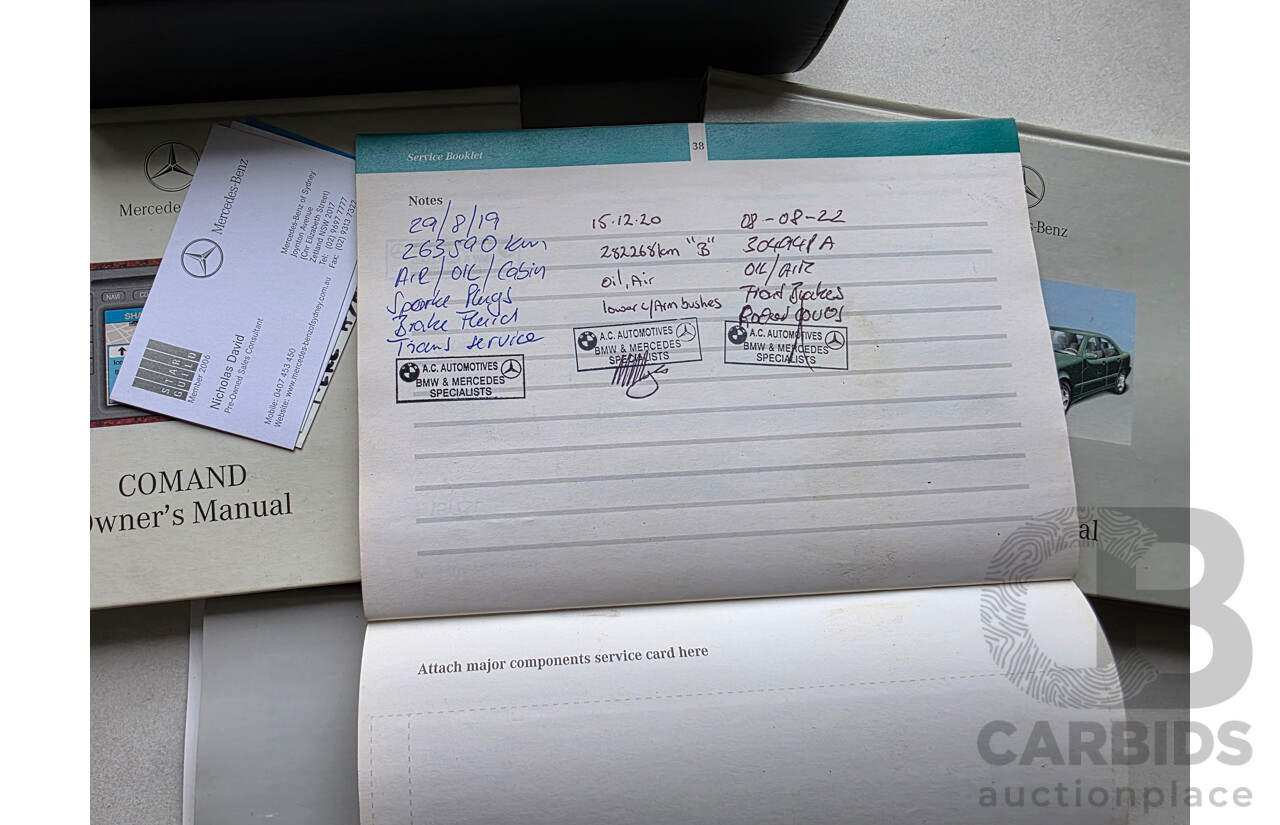 Service Booklet
38
Notes
29/8/19
263590 km
AIR/OIL/Cabin
Sparke Plugs
Brake Fluid
Trans service
A.C. AUTOMOTIVES
BMW & MERCEDES
SPECIALISTS
15.12.20
282268km "B"
oil, Air
lower c/Arm bushes
A.C. AUTOMOTIVES
BMW & MERCEDES
SPECIALISTS
08-08-22
OIL/AIR
Front Brakes
A.C. AUTOMOTIVES
BMW & MERCEDES
SPECIALISTS
Attach major components service card here
Mercedes-Benz
Mercedes-Benz of Sydney
Joynton Avenue
(Cnr Elizabeth Street)
Zetland NSW 2017
Tel: (02) 9697 7777
Fax: (02) 9313 7327
STAR
GUILD
Member 2006
Nicholas David
Pre-Owned Sales Consultant
Mobile: 0407 453 450
Website: www.mercedes-benzofsydney.com.au
Mercede
NAVI
COMAND
wner's Manual
-Benz
al
CB
CARBIDS
auctionplace